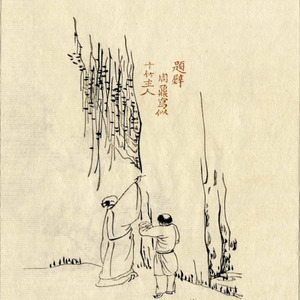 題壁
周鼐寫似
十竹主人